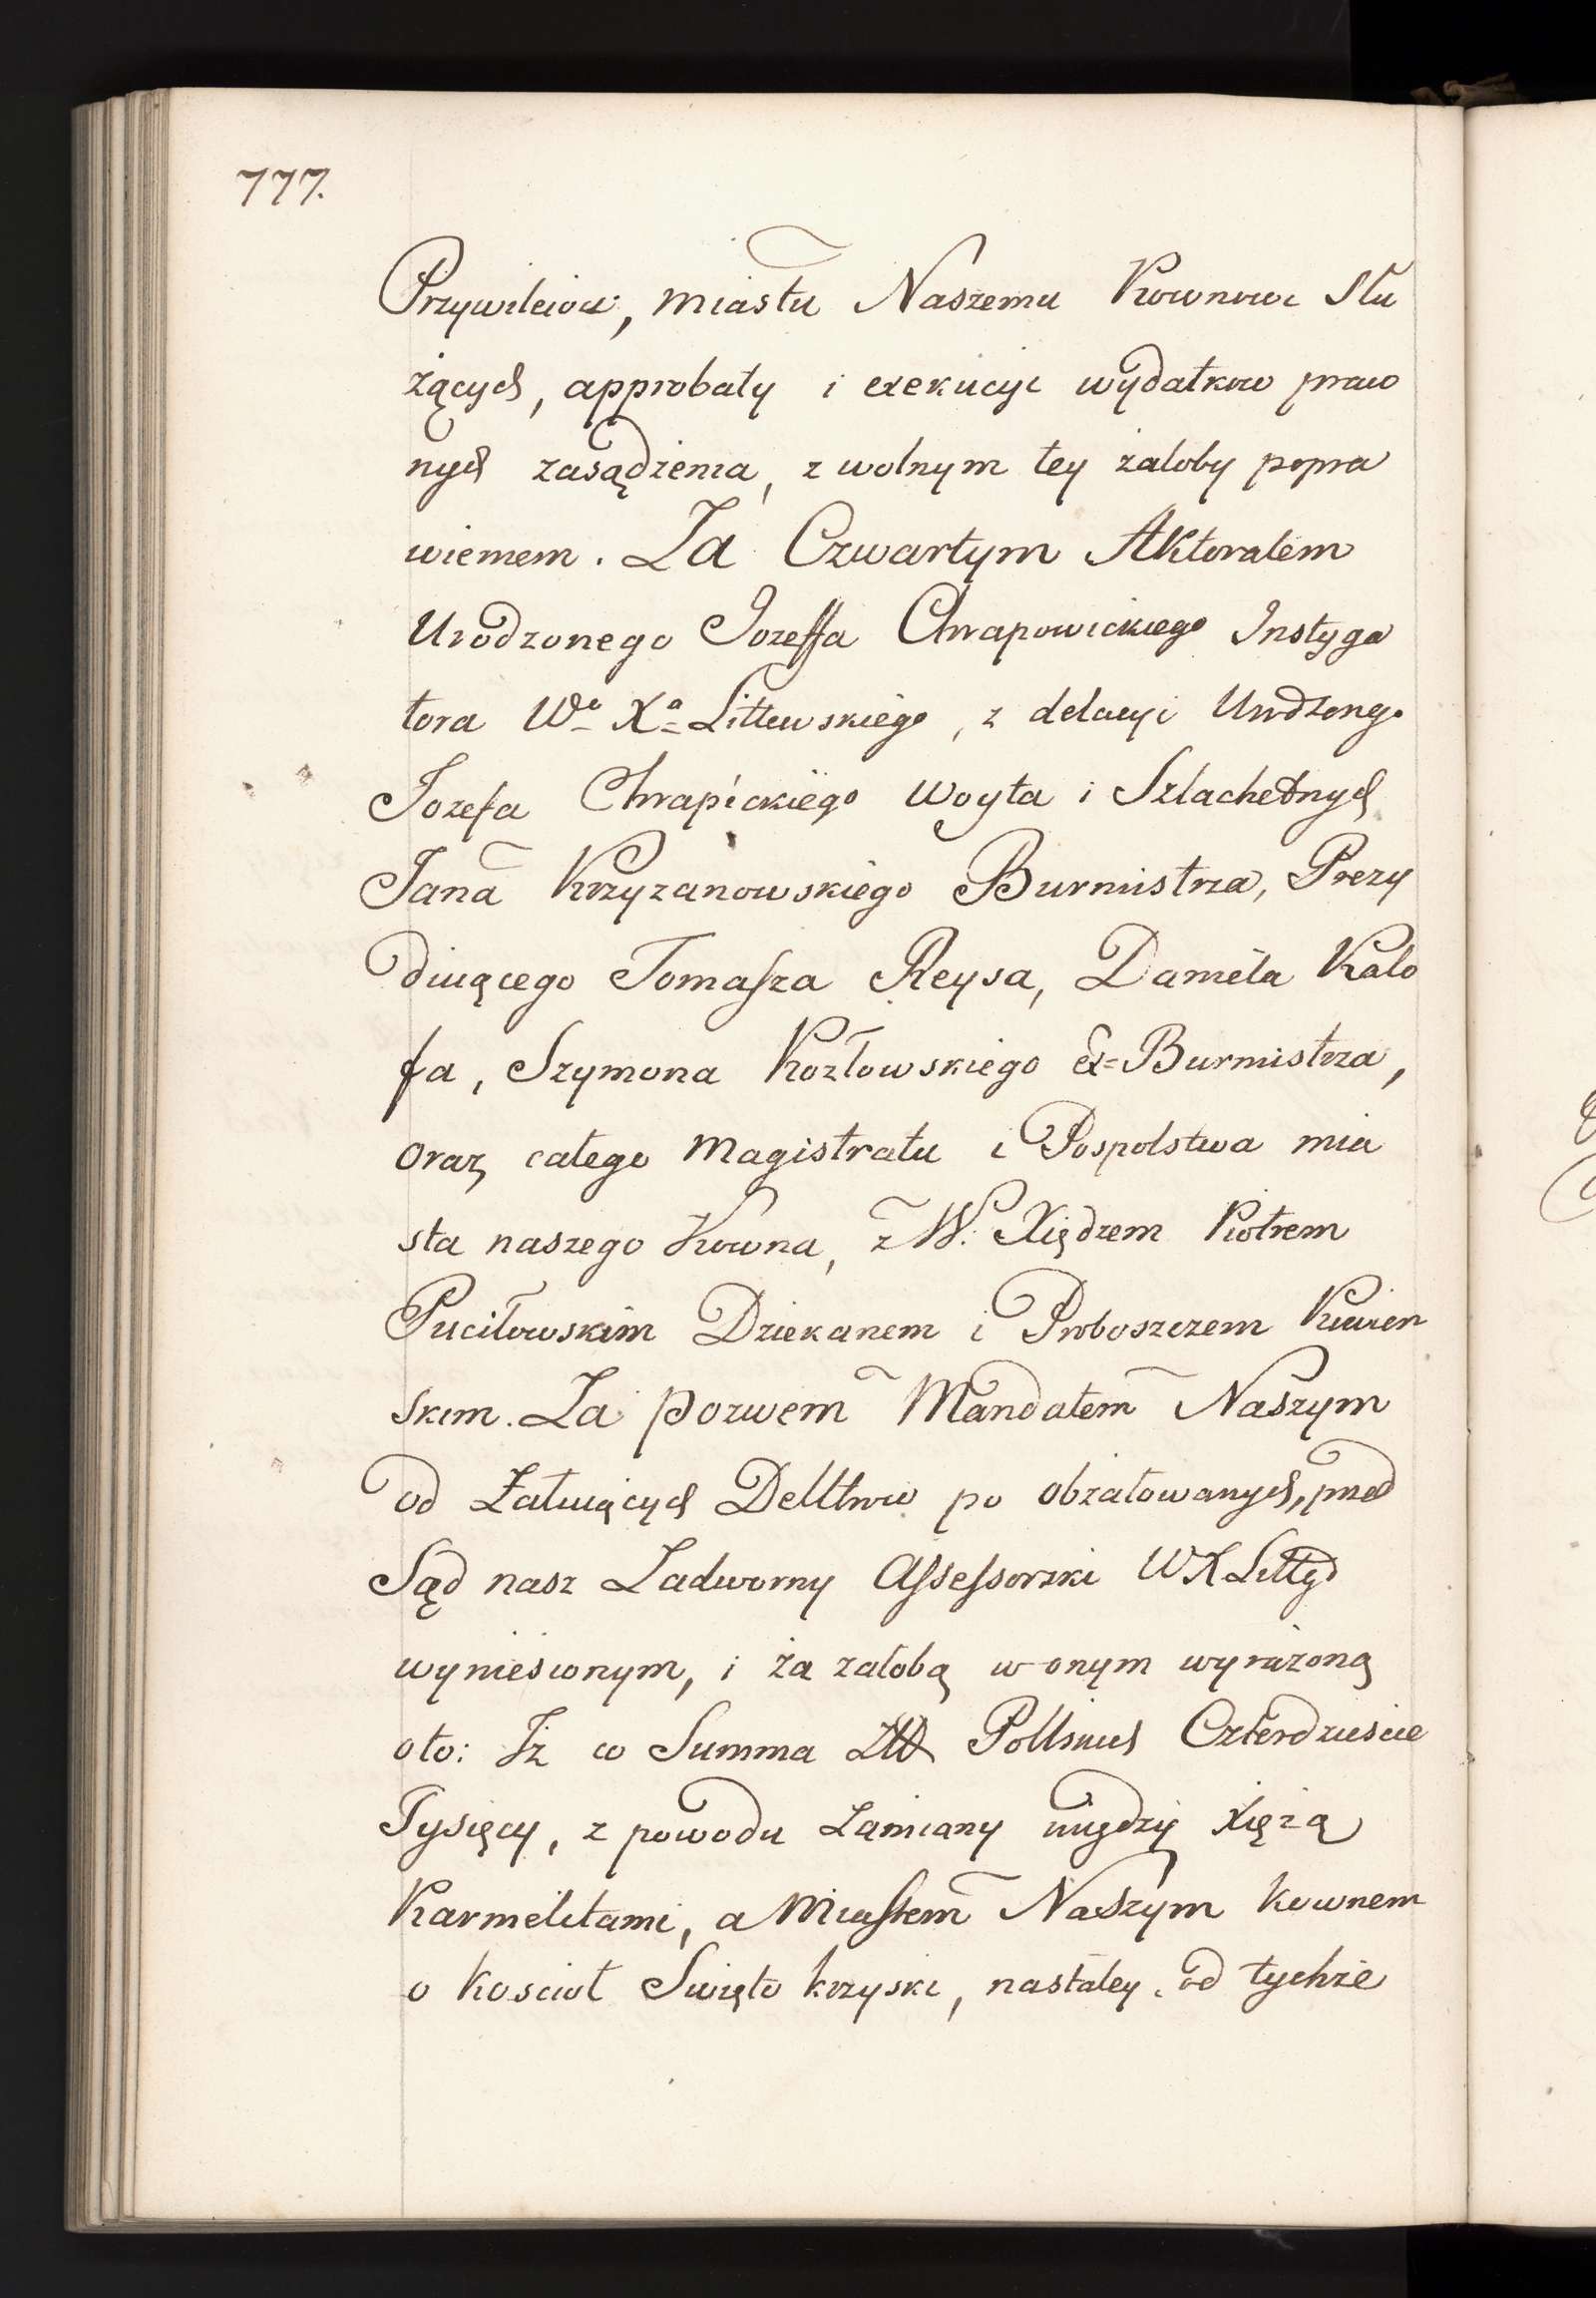 777.
Przywileiow, miastu Naszemu Kownowi Słu
żących, approbaty i exekucyi wydatkow praw
nych zasądzenia, z wolnym tey załoby popra
wieniem. Za Czwartym Aktoratem
Urodzonego Jozeffa Chrapowickiego Instyga
tora Wo Xa Littewskiego, z delacyi Urodzonego
Jozefa Chrapickiego Woyta i Szlachetnych
Jana Krzyzanowskiego Burmistrza, Prezy
duiącego Tomasza Reysa, Daniela Kalo
fa, Szymona Kozłowskiego Ex=Burmistrza,
oraz całego Magistratu i Pospolstwa mia
sta naszego Kowna, z W. Xiędzem Piotrem
Puciłowskim Dziekanem i Proboszczem Kowien
skim. Za pozwem Mandatem Naszym
od Załuiących Delltrow po obzałowanych, przed
Sąd nasz Zadworny Assessorski WXLitty
wyniesionym, i za załobą w onym wyrażoną
oto: Iż co Summa Polskich Czterdziescie
Tysięcy, z powodu Zamiany między Xięzą
Karmelitami, a Miastem Naszym Kownem
o Kosciół Swięto krzyski, nastałey, od tychże